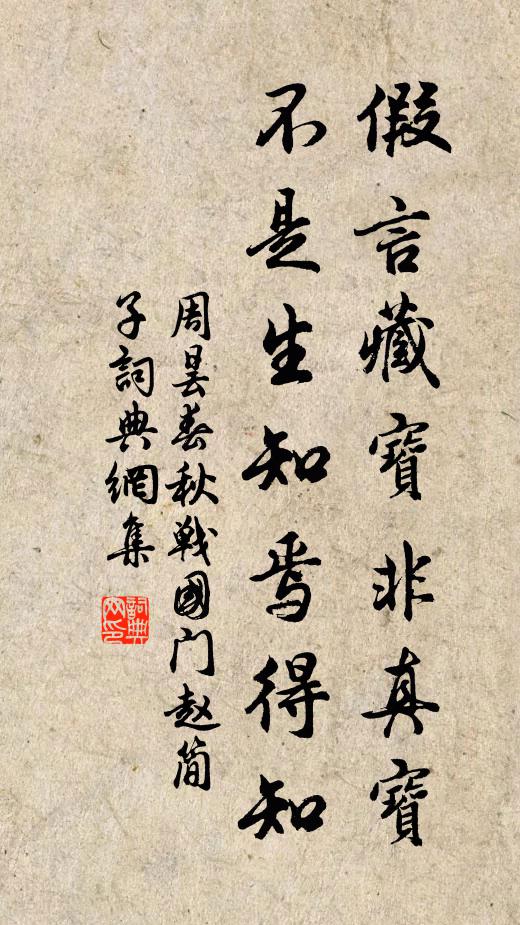 假言藏寶非真寶
不是生知焉得知
周昙春秋戰國门赵简
子詞典網集
詞典網印